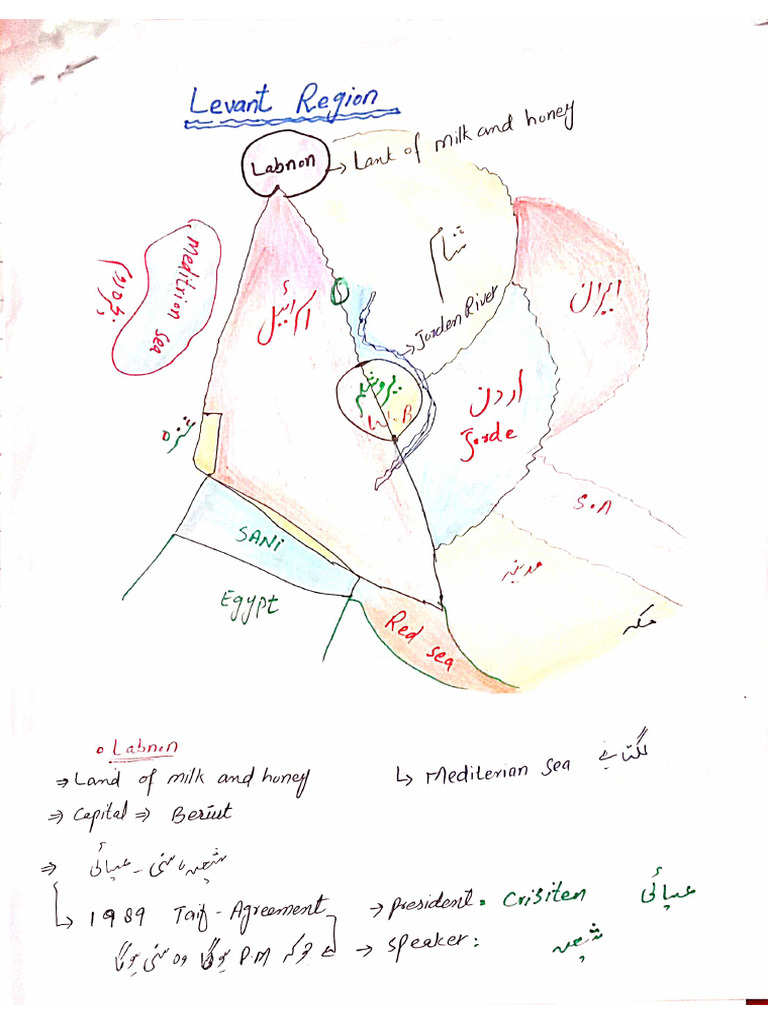 Levant Region
Labnon
→ Lant of milk and honey
شام
ایران
Meditrion sea
بحیرہ روم
اسرائیل
Jorden River
یروشلم
W.B
اردن
Jorde
غزہ
S.A
SANi
مدینہ
Egypt
مکہ
Red sea
• Labnon
⇒ Land of milk and honey
↳ Mediterian sea لگتا ہے
⇒ Capital ⇒ Beriut
⇒ شیعہ، سنی - عیسائی
↳ 1989 Taif - Agreement
→ president • Crisiten عیسائی
جو کہ P.M ہوگا وہ سنی ہوگا
→ speaker: شیعہ